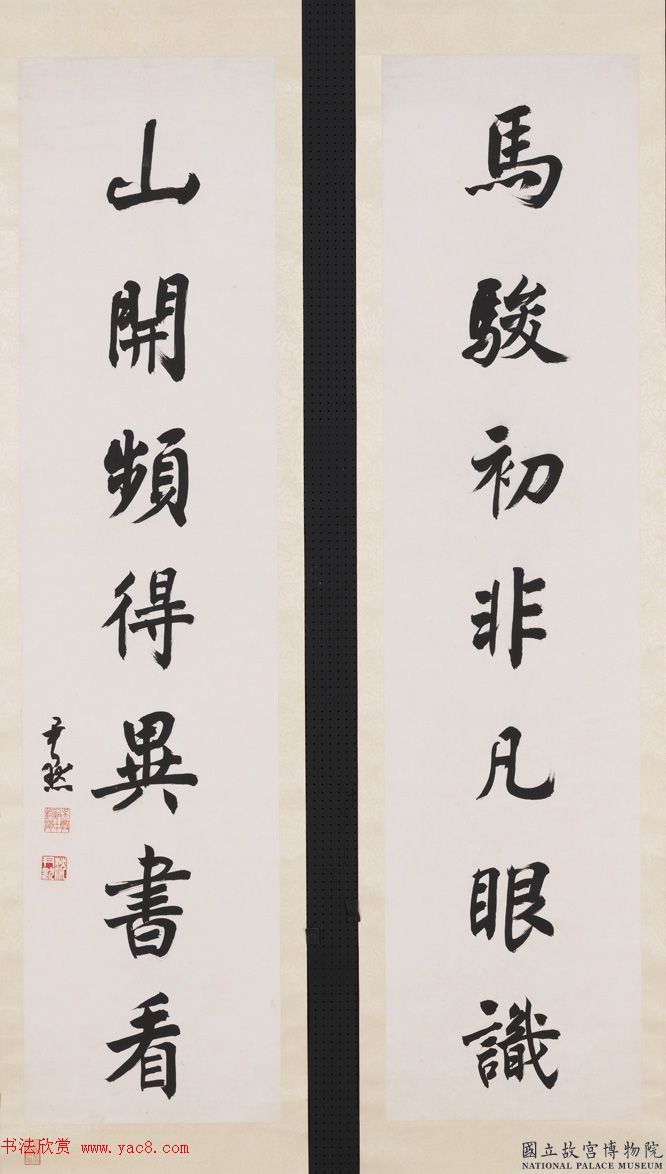 馬駿初非凡眼識
山開頻得異書看
尹默
书法欣赏 www.yac8.com
國立故宮博物院
NATIONAL PALACE MUSEUM